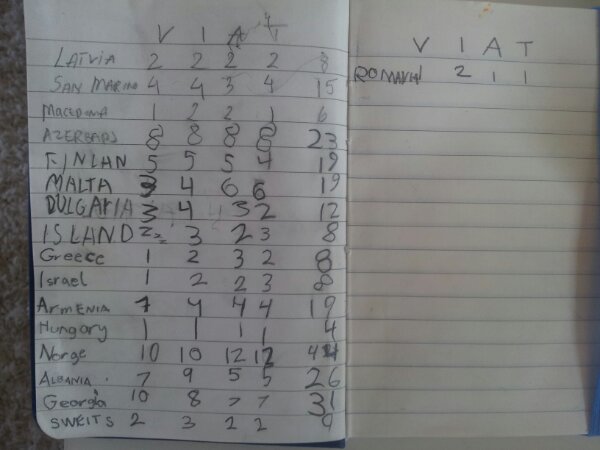 V I A T
LATVIA 2 2 2 2 8
SAN MARINO 4 4 3 4 15
Macedonia 1 2 2 1 6
AZERBADS 8 8 8 8 23
FINLAN 5 5 5 4 19
MALTA 3 4 6 6 19
BULGARIA 3 4 3 2 12
ISLAND 2 3 2 3 8
Greece 1 2 3 2 8
Israel 1 2 2 3 8
ARMENIA 7 4 4 4 19
Hungary 1 1 1 1 4
Norge 10 10 12 12 44
ALBANIA 7 9 5 5 26
Georgia 10 8 7 7 31
SWEITS 2 3 2 2 9
V I A T
ROMANIA 2 1 1